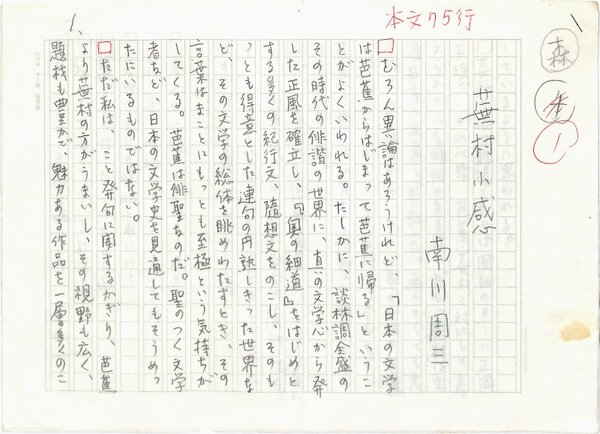 本文75行
1.
森
1
蕪村小感
南川周三
むろん異論はあろうけれど、「日本の文学
は芭蕉からはじまって芭蕉に帰る」というこ
とがよくいわれる。たしかに、談林調全盛の
その時代の俳諧の世界に、真の文学心から発
した正風を確立し、『奥の細道』をはじめと
する多くの紀行文、随想文をのこし、そのも
っとも得意とした連句の円熟しきった世界な
ど、その文学の総体を眺めわたすとき、その
言葉はまことにもっとも至極という気持ちが
してくる。芭蕉は俳聖なのだ。聖のつく文学
者など、日本の文学史を見通してもそうめっ
たにいるものではない。
ただ私は、こと発句に関するかぎり、芭蕉
より蕪村の方がうまいし、その視野も広く、
題材も豊かで、魅力ある作品を一層多くのこ